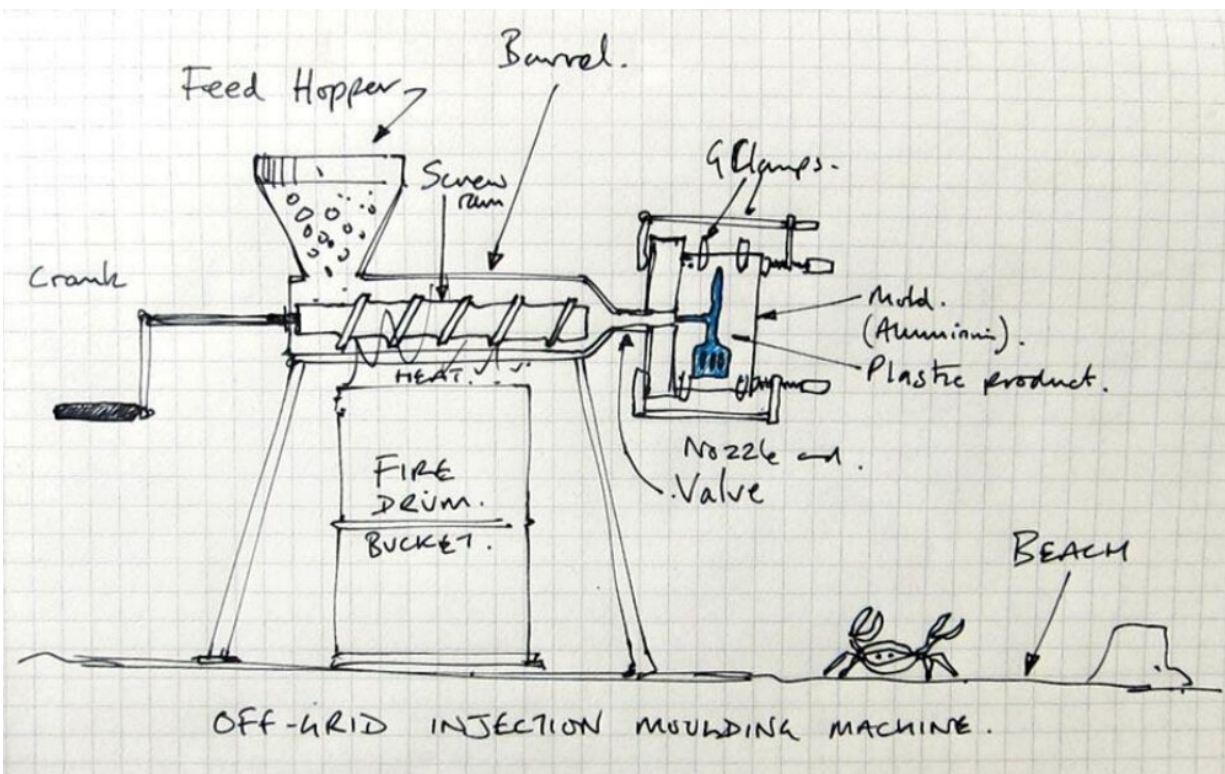 Barrel.
Feed Hopper
G Clamps.
Screw
ram
Crank
Mold.
(Aluminium).
Plastic product.
HEAT.
Nozzle and.
Valve
FIRE
DRUM.
BUCKET.
BEACH
OFF-GRID INJECTION MOULDING MACHINE.